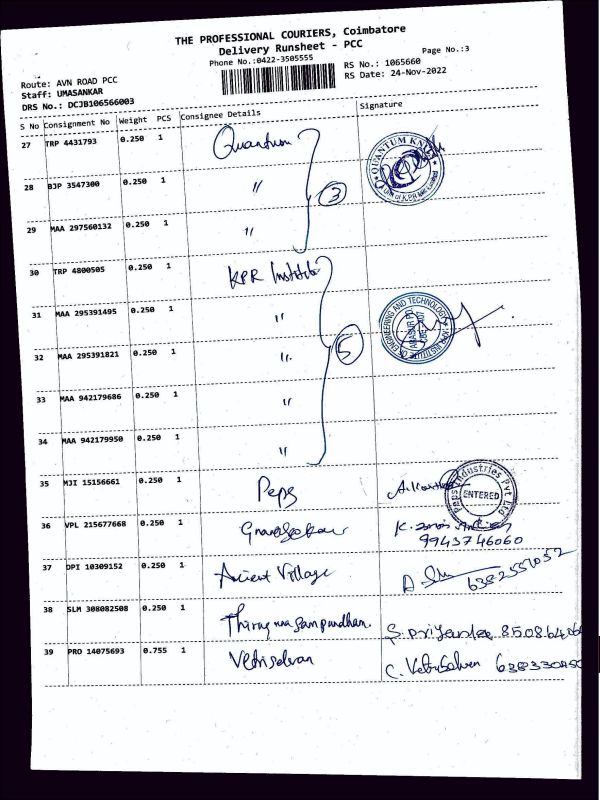 THE PROFESSIONAL COURIERS, Coimbatore
Delivery Runsheet - PCC
Phone No.:0422-3505555
Page No.:3
Route: AVN ROAD PCC
RS No.: 1065660
Staff: UMASANKAR
RS Date: 24-Nov-2022
DRS No.: DCJB106566003
S No Consignment No Weight PCS Consignee Details Signature
27 TRP 4431793 0.250 1 Quantum
QUANTUM
28 BJP 3547300 0.250 1 〃 3
29 MAA 297560132 0.250 1 〃
30 TRP 4800505 0.250 1 KPR Institute
31 MAA 295391495 0.250 1 〃
OF ENGINEERING AND TECHNOLOGY KPR INSTITUTE
32 MAA 295391821 0.250 1 〃 5
33 MAA 942179686 0.250 1 〃
34 MAA 942179950 0.250 1 〃
35 MJI 15156661 0.250 1 Peps
Peps Industries Pvt Ltd ENTERED
36 VPL 215677668 0.250 1
9943746060
37 DPI 10309152 0.250 1 Ancient Village
38 SLM 308082508 0.250 1
39 PRO 14075693 0.755 1 Vetriselvan